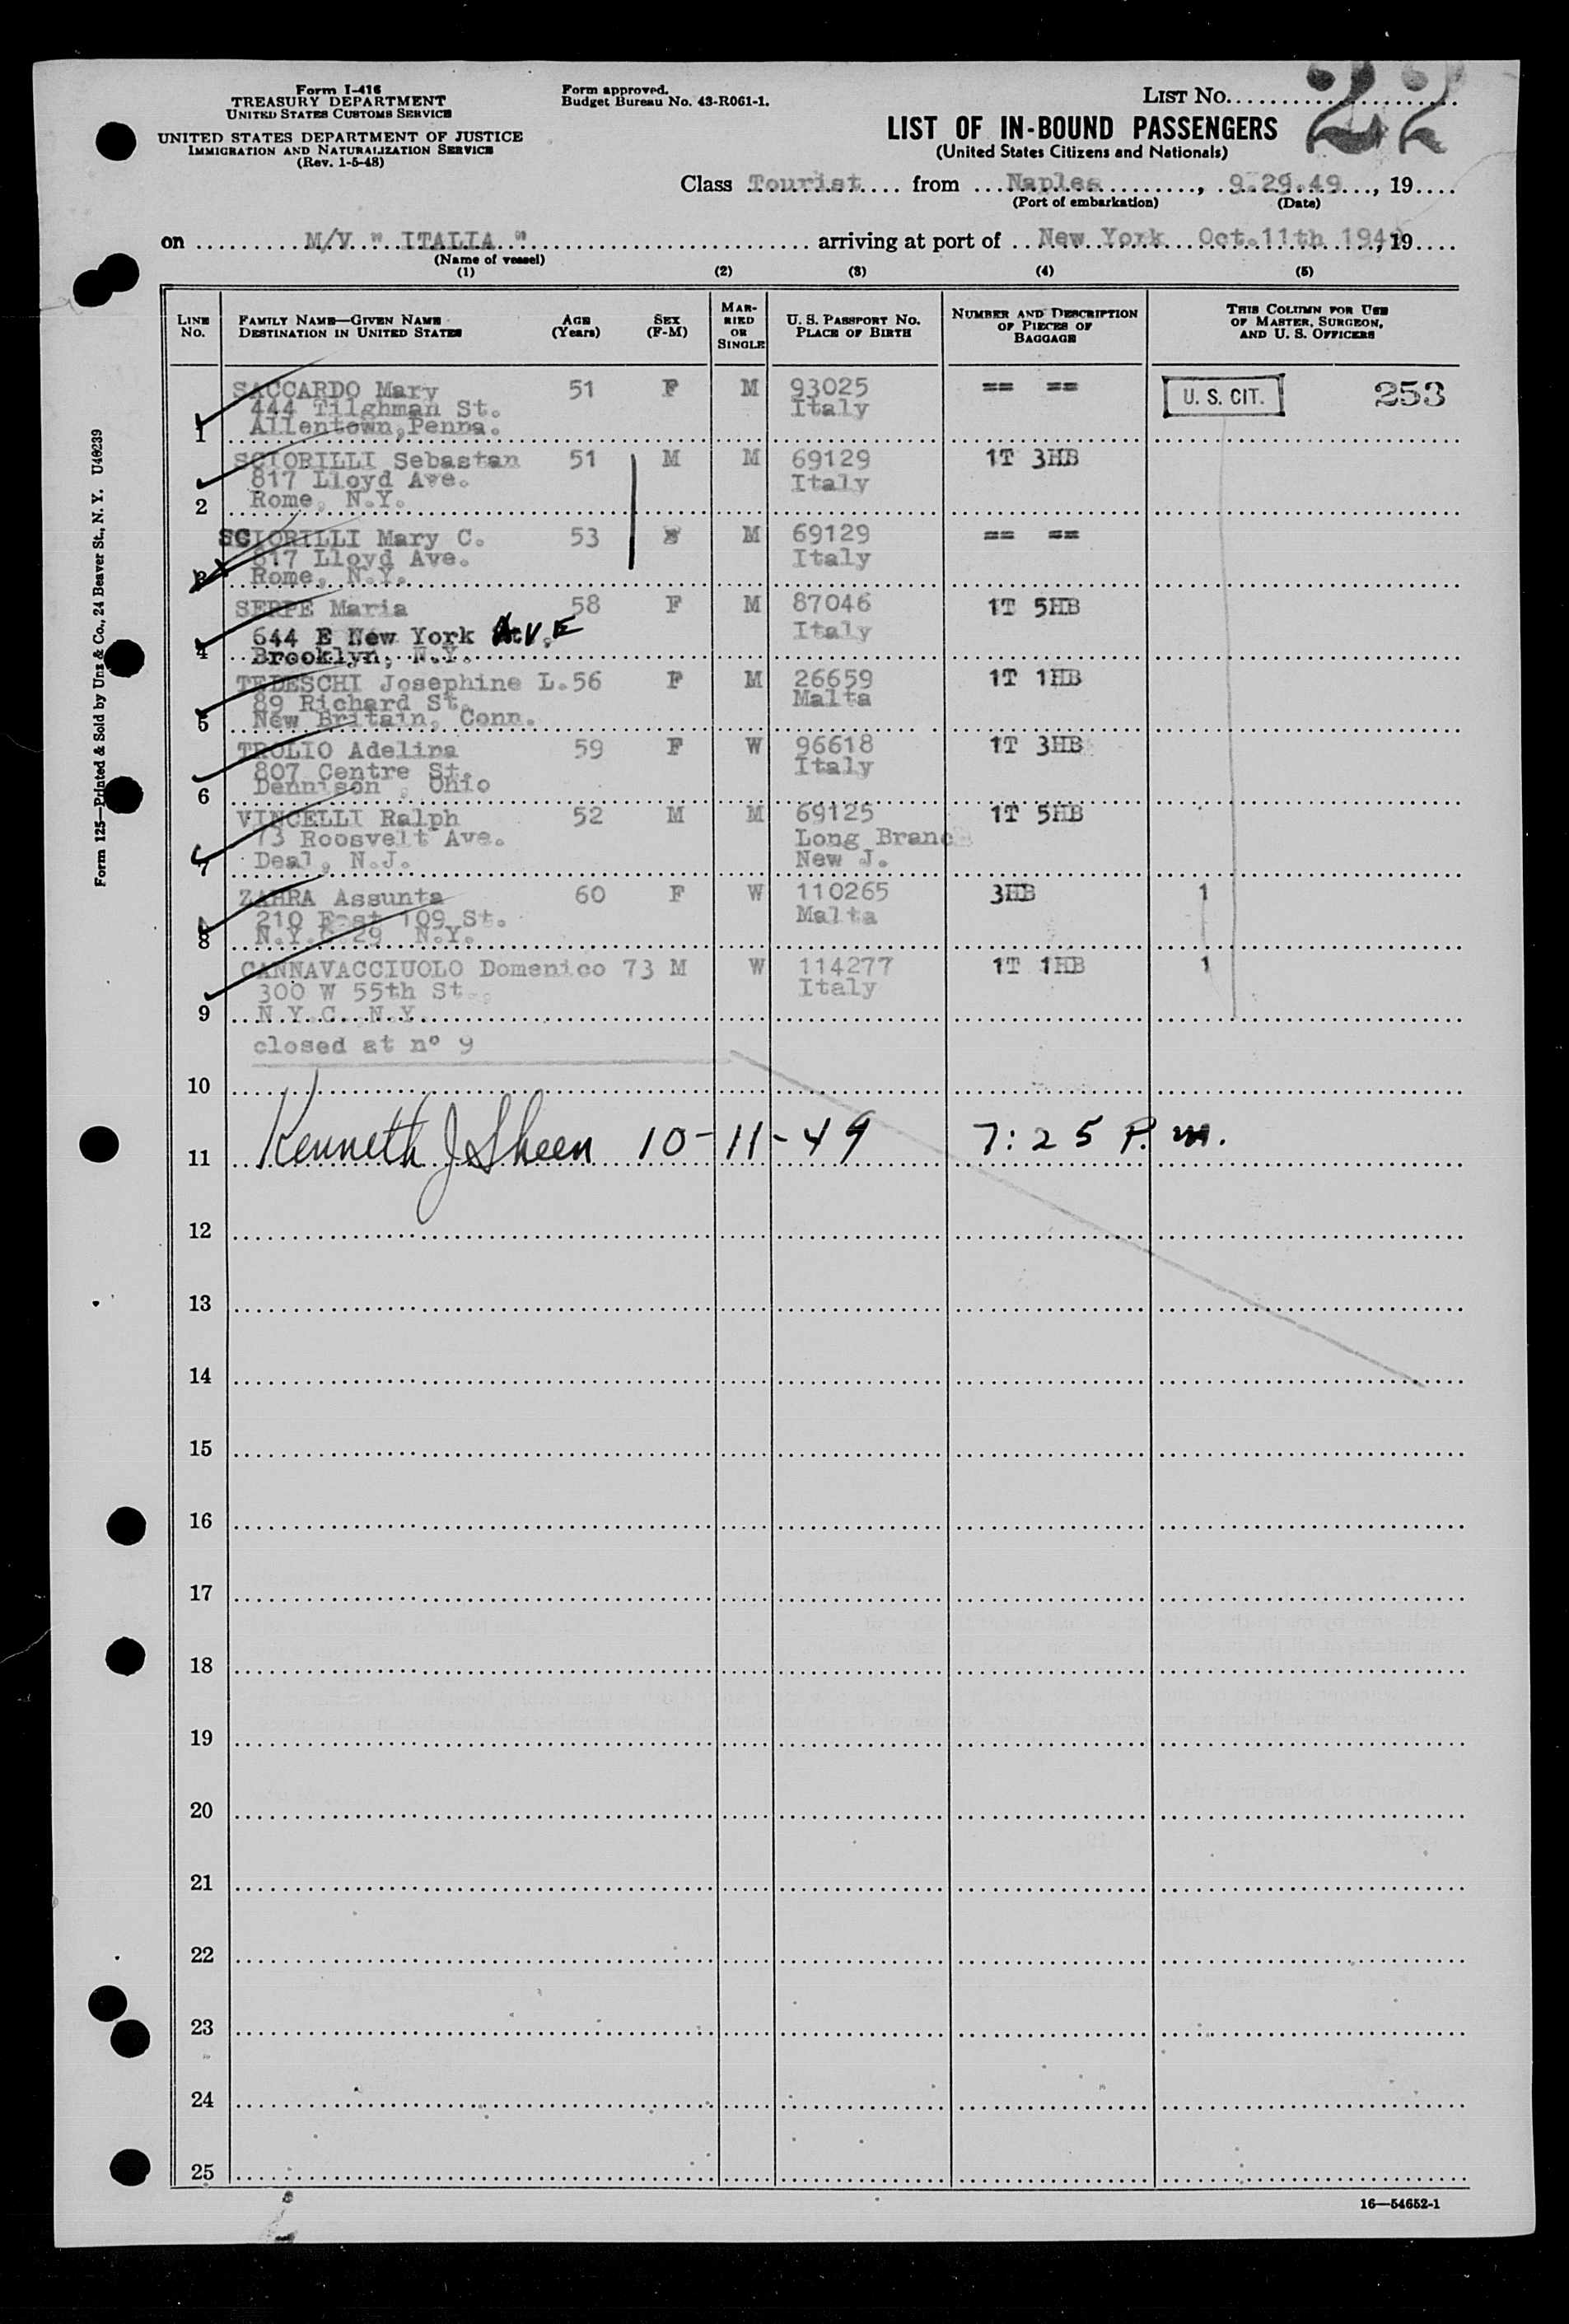 Form I-416
TREASURY DEPARTMENT
UNITED STATES CUSTOMS SERVICE
UNITED STATES DEPARTMENT OF JUSTICE
IMMIGRATION AND NATURALIZATION SERVICE
(Rev. 1-5-48)
Form approved.
Budget Bureau No. 43-R061-1.
LIST NO. 22
LIST OF IN-BOUND PASSENGERS
(United States Citizens and Nationals)
Class Tourist from Naples, 9.29.49, 19
(Port of embarkation) (Date)
on M/V " ITALIA " arriving at port of New York Oct.11th 1949, 19
(Name of vessel)
(1) (2) (3) (4) (5)
LINE No. FAMILY NAME—GIVEN NAME DESTINATION IN UNITED STATES AGE (Years) SEX (F-M) MARRIED OR SINGLE U. S. PASSPORT NO. PLACE OF BIRTH NUMBER AND DESCRIPTION OF PIECES OF BAGGAGE THIS COLUMN FOR USE OF MASTER, SURGEON, AND U. S. OFFICERS
SACCARDO Mary 51 F M 93025 == == U. S. CIT. 253
444 Tilghman St. Italy
1 Allentown,Penna.
SCIORILLI Sebastan 51 M M 69129 1T 3HB
817 Lloyd Ave. Italy
2 Rome, N.Y.
SCIORILLI Mary C. 53 M 69129 == ==
817 Lloyd Ave. Italy
3 Rome, N.Y.
SERPE Maria 58 F M 87046 1T 5HB
644 E New York AVE Italy
4 Brooklyn, N.Y.
TEDESCHI Josephine L.56 F M 26659 1T 1HB
89 Richard St. Malta
5 New Britain, Conn.
TROLIO Adelina 59 F W 96618 1T 3HB
807 Centre St. Italy
6 Dennison , Ohio
VINCELLI Ralph 52 M M 69125 1T 5HB
73 Roosvelt Ave. Long Branc
7 Deal, N.J. New J.
ZAHRA Assunta 60 F W 110265 3HB 1
210 East 109 St. Malta
8 N.Y.C.29 N.Y.
CANNAVACCIUOLO Domenico 73 M W 114277 1T 1HB 1
300 W 55th St. Italy
9 N.Y.C. N.Y.
closed at nº 9
10
11 Kenneth J Sheen 10-11-49 7:25 P.m.
12
13
14
15
16
17
18
19
20
21
22
23
24
25
16—54652-1
Form 125—Printed & Sold by Unz & Co., 24 Beaver St., N. Y. U40239